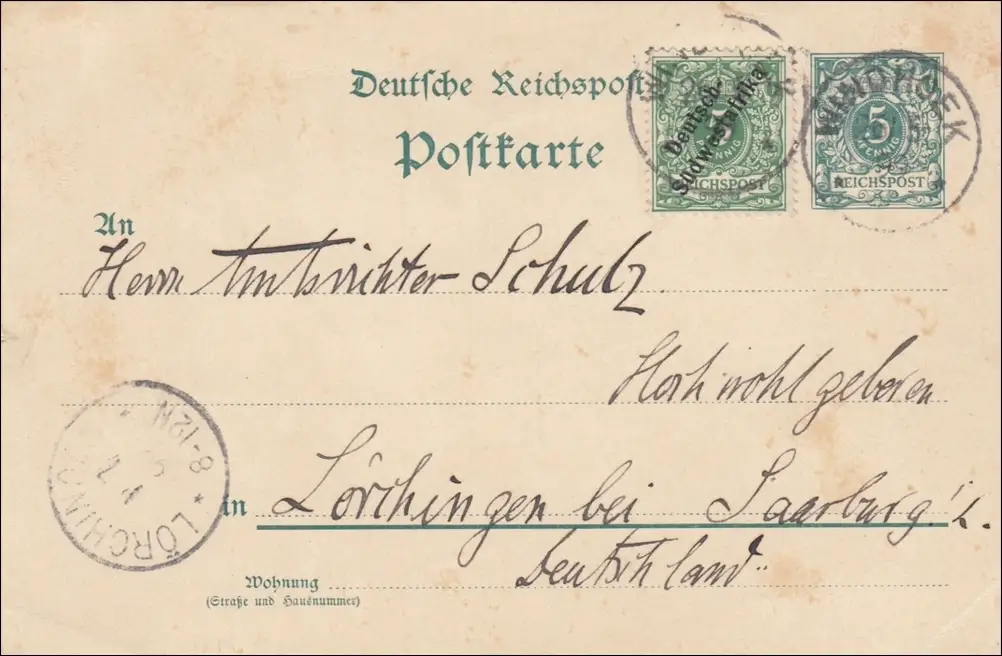 Deutsche Reichspost
Postkarte
Deutsch-
Südwestafrika
5
PFENNIG
REICHSPOST
5
PFENNIG
REICHSPOST
WINDHOEK
An
Herrn Amtsrichter Schulz.
Hochwohlgeboren
in Lörchingen bei Saarburg i. L.
Deutschland
Wohnung
(Straße und Hausnummer)
LÖRCHINGEN
8-12N